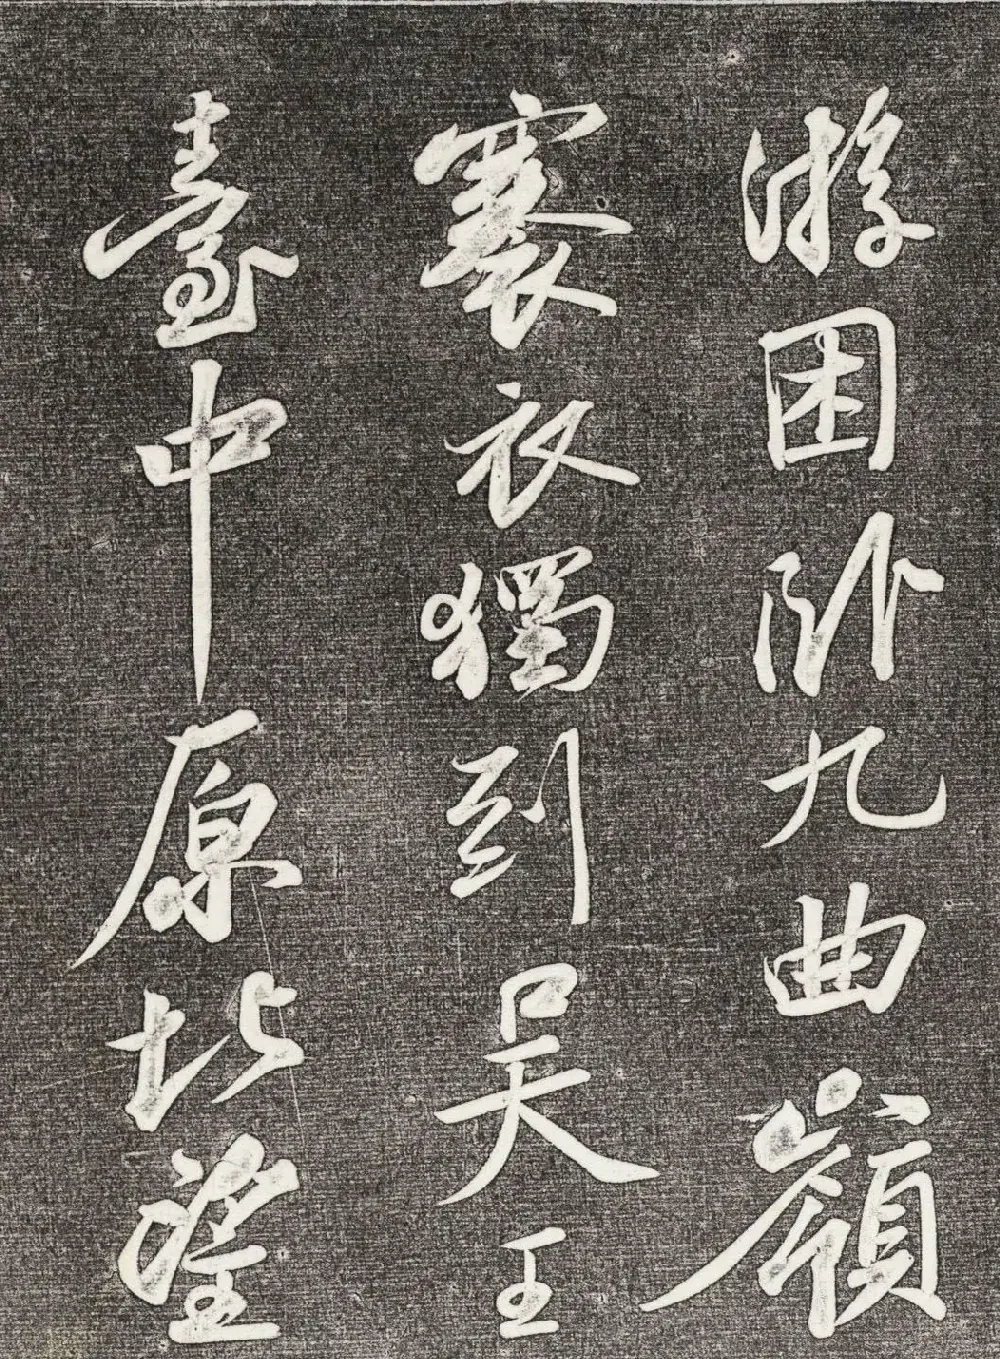 游困卧九曲嶺
褰衣獨到吴王
臺中原北望